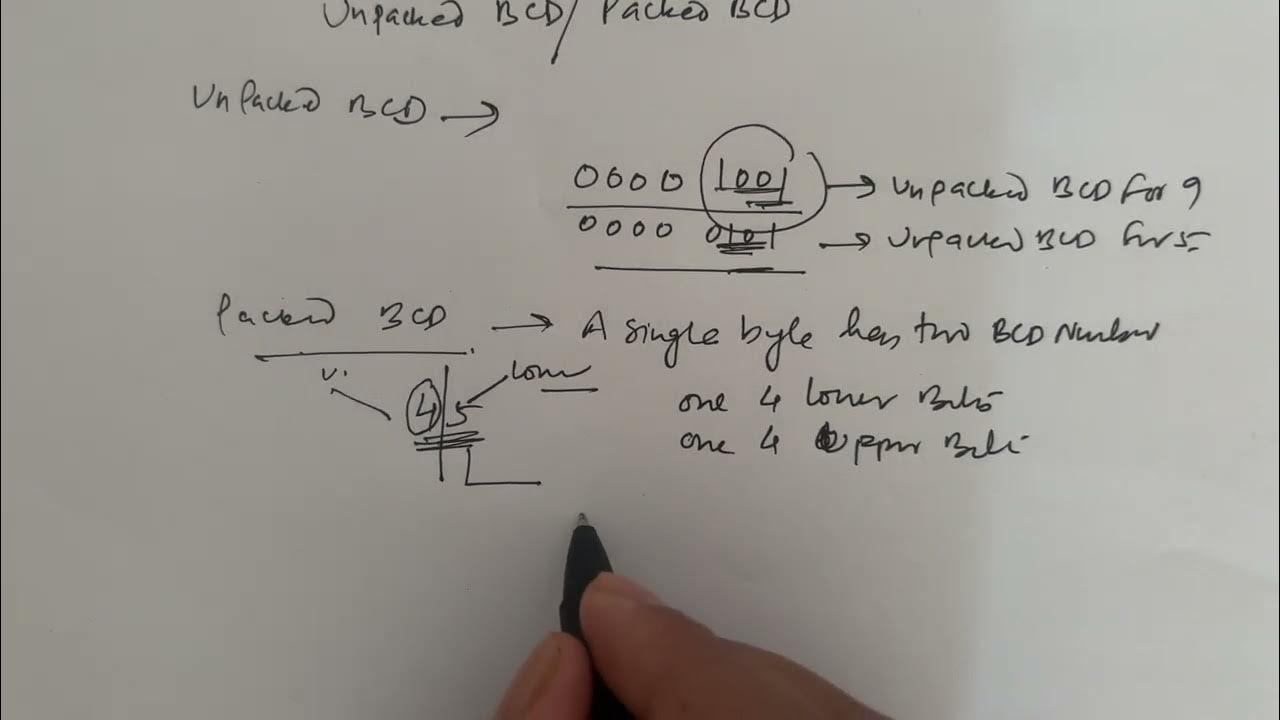 Unpacked BCD / Packed BCD
UnPacked BCD →
0000 1001 → Unpacked BCD For 9
0000 0101 → Unpacked BCD For 5
Packed BCD → A single byte has two BCD Number
U. 4 5 Lower
one 4 lower Bits
one 4 Upper Bits